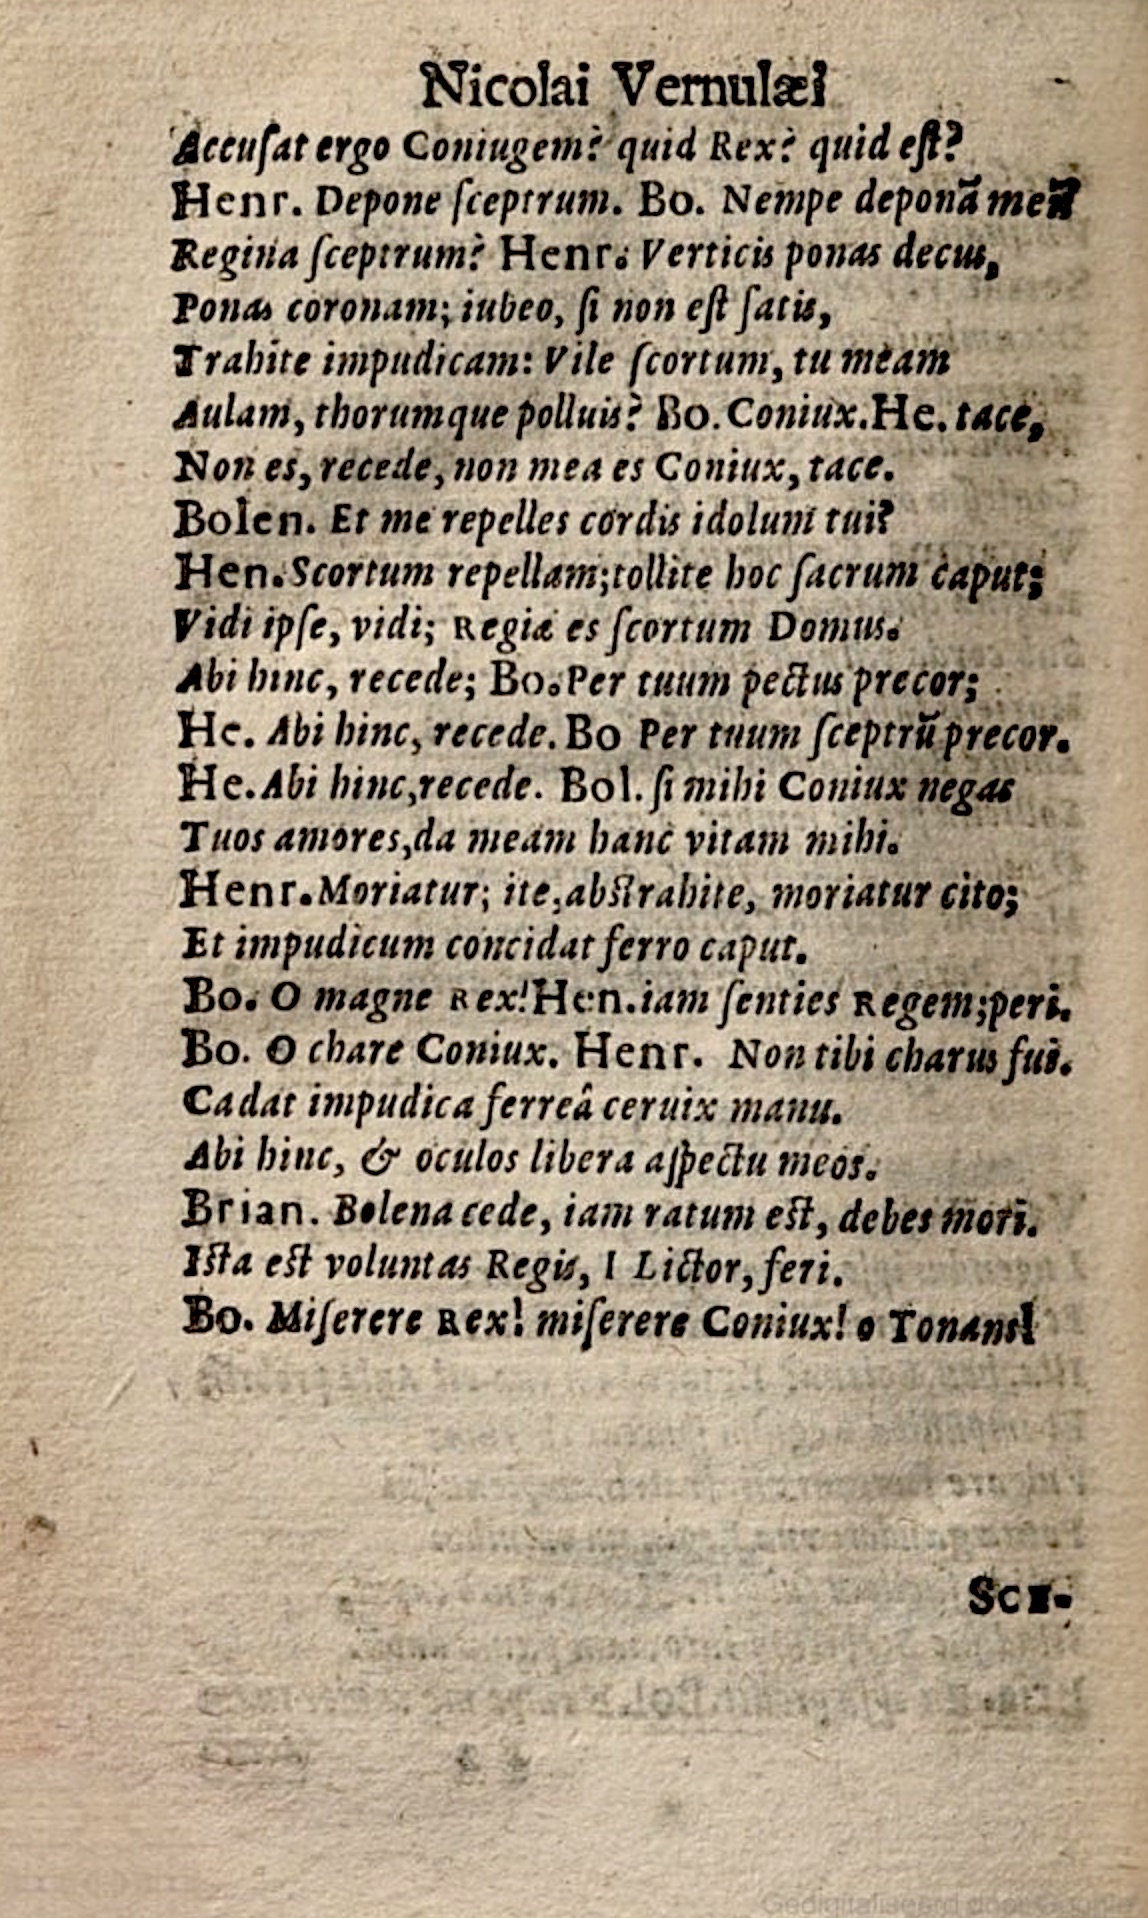 Nicolai Vernulæi
Accuſat ergo Coniugem? quid Rex? quid eſt?
Henr. Depone ſceptrum. Bo. Nempe deponã meũ
Regina ſceptrum? Henr. Verticis ponas decus,
Ponas coronam; iubeo, ſi non eſt ſatis,
Trahite impudicam: Vile ſcortum, tu meam
Aulam, thorumque polluis? Bo. Coniux. He. tace,
Non es, recede, non mea es Coniux, tace.
Bolen. Et me repelles cordis idolum tui?
Hen. Scortum repellam; tollite hoc ſacrum caput;
Vidi ipſe, vidi; Regiæ es ſcortum Domus.
Abi hinc, recede; Bo. Per tuum pectus precor;
He. Abi hinc, recede. Bo Per tuum ſceptrũ precor.
He. Abi hinc, recede. Bol. ſi mihi Coniux negas
Tuos amores, da meam hanc vitam mihi.
Henr. Moriatur; ite, abſtrahite, moriatur cito;
Et impudicum concidat ferro caput.
Bo. O magne Rex! Hen. iam ſenties Regem; peri.
Bo. O chare Coniux. Henr. Non tibi charus fui.
Cadat impudica ferreâ ceruix manu.
Abi hinc, & oculos libera aſpectu meos.
Brian. Bolena cede, iam ratum eſt, debes mori.
Iſta eſt voluntas Regis, I Lictor, feri.
Bo. Miſerere Rex! miſerere Coniux! o Tonans!
SCE-